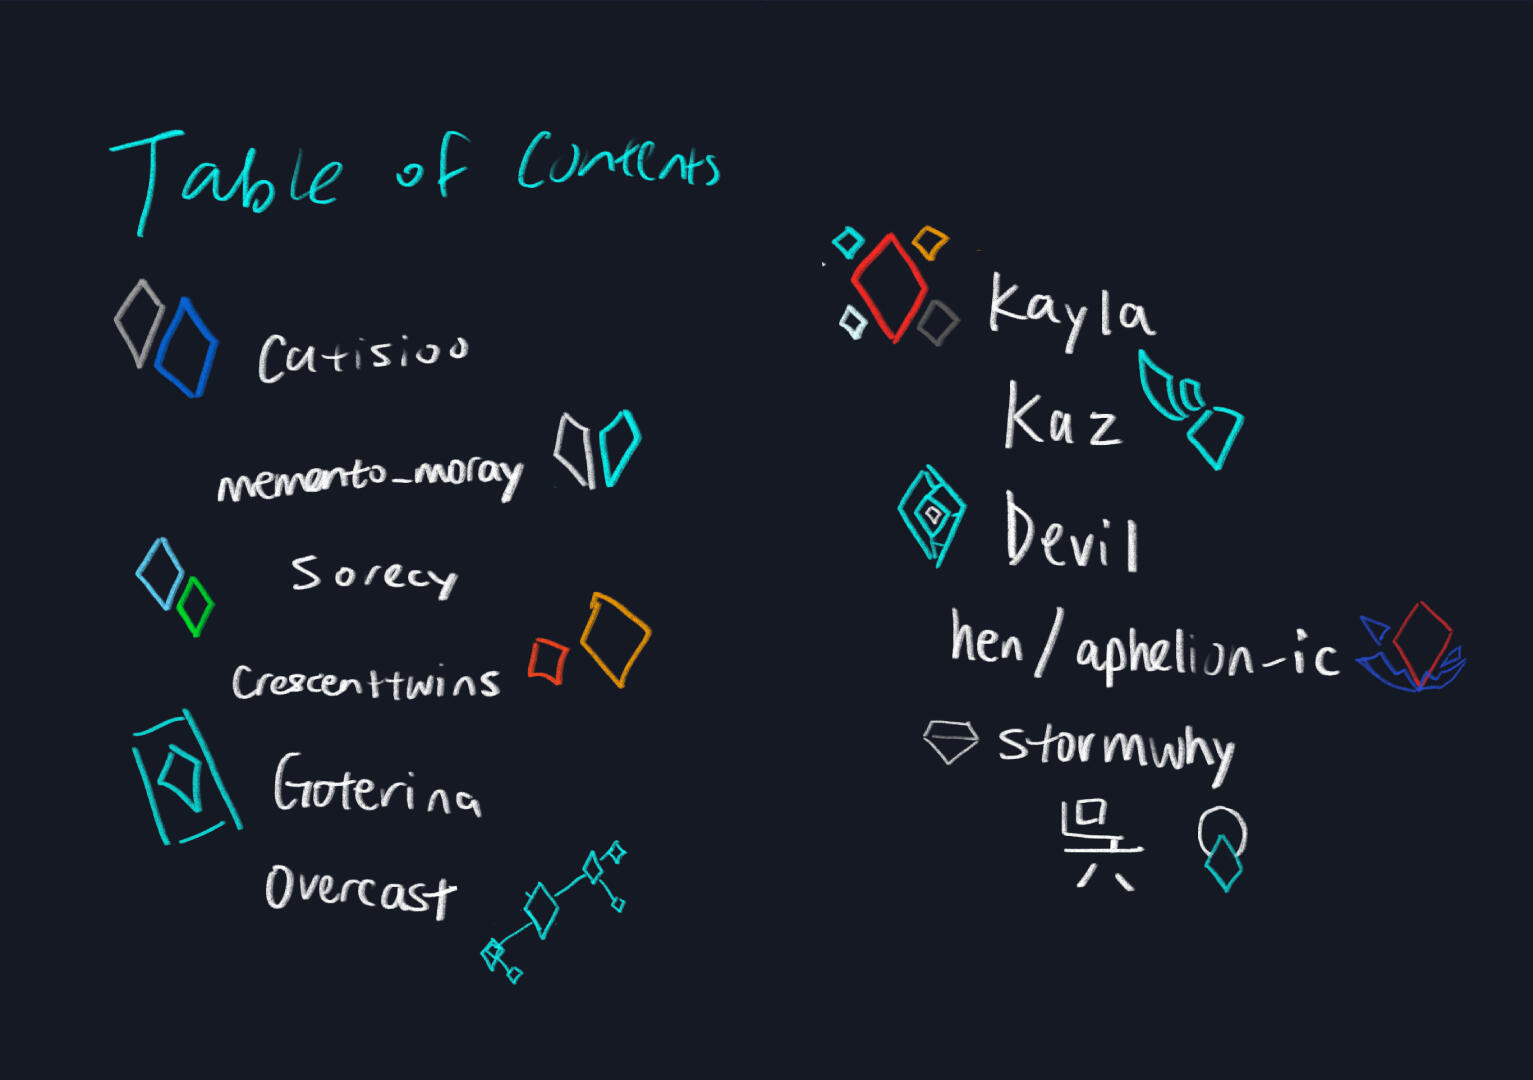 Table of Contents
Catisioo
memento_moray
Sorecy
Crescenttwins
Goterina
Overcast
Kayla
Kaz
Devil
hen/aphelion-ic
stormwhy
呉